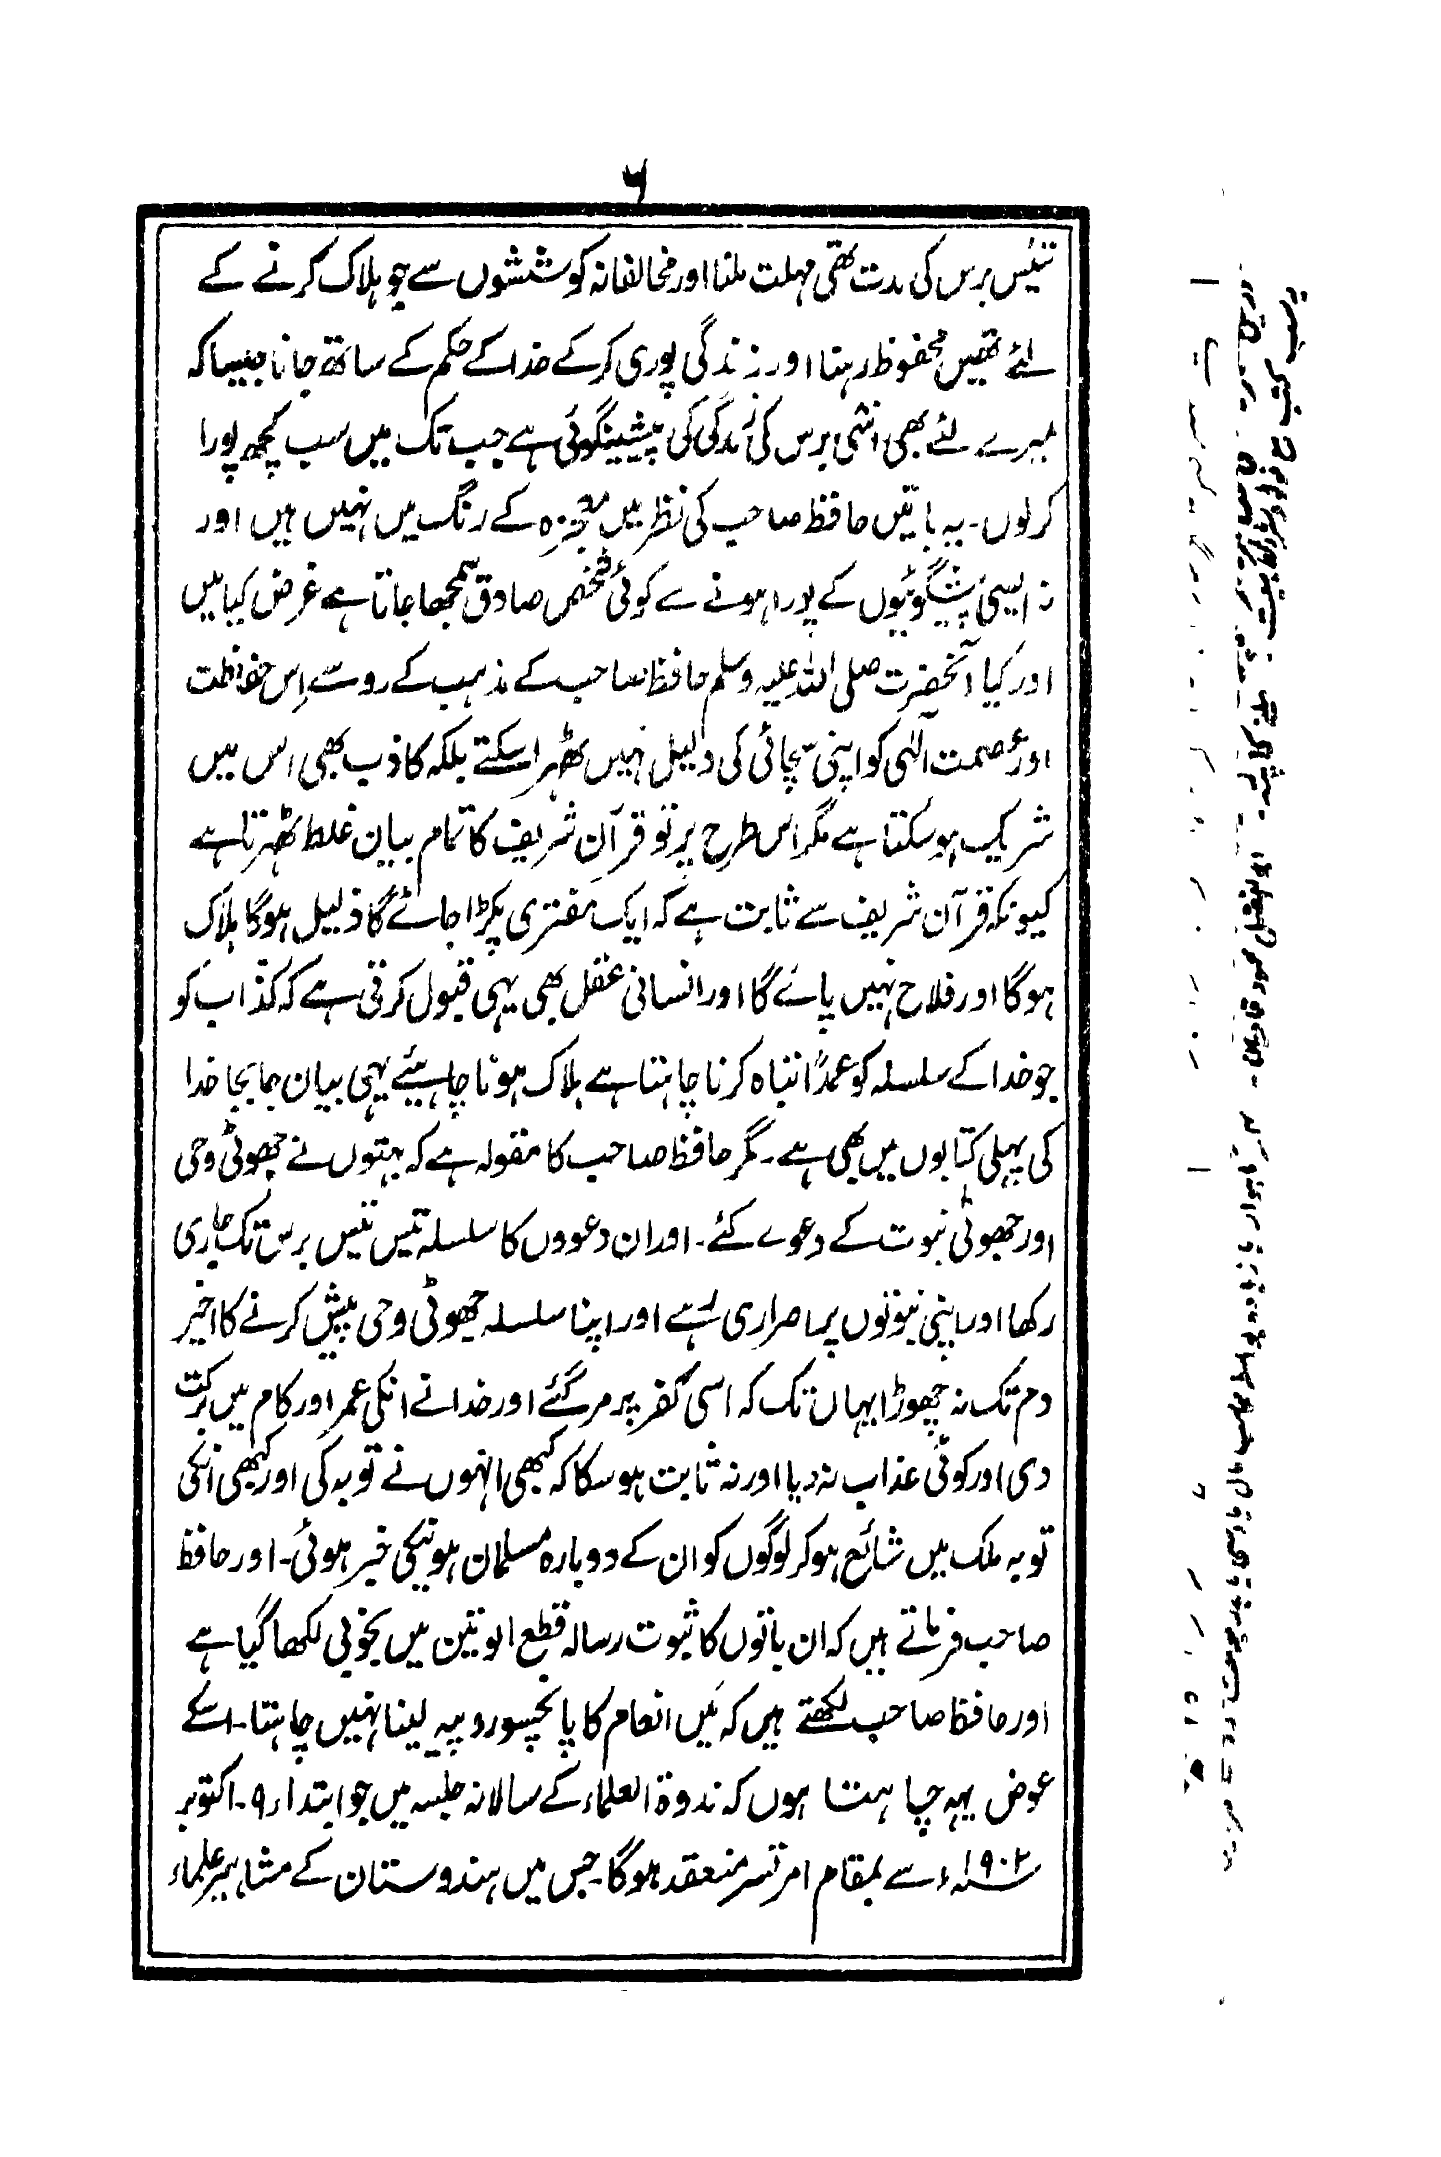 ۶
تیئیس برس کی مدت تھی مہلت ملنا اور مخالفانہ کوششوں سے جو ہلاک کرنے کے
لئے تھیں محفوظ رہنا اور زندگی پوری کرکے خدا کے حکم کے ساتھ جانا جیسا کہ
میرے لئے بھی اسّی برس کی زندگی کی پیشینگوئی ہے جب تک میں سب کچھ پورا
کر لوں۔ یہ باتیں حافظ صاحب کی نظر میں معجزہ کے رنگ میں نہیں ہیں اور
نہ ایسی پیشگوئیوں کے پورا ہونے سے کوئی شخص صادق سمجھا جاتا ہے غرض کیا میں
اور کیا آنحضرت صلی اللہ علیہ وسلم حافظ صاحب کے مذہب کے رو سے اِس حفاظت
اور عصمت الٰہی کو اپنی سچائی کی دلیل نہیں ٹھہرا سکتے بلکہ کاذب بھی اس میں
شریک ہو سکتا ہے مگر اس طرح پر تو قرآن شریف کا تمام بیان غلط ٹھہرتا ہے
کیونکہ قرآن شریف سے ثابت ہے کہ ایک مفتری پکڑا جائے گا ذلیل ہوگا ہلاک
ہوگا اور فلاح نہیں پائے گا اور انسانی عقل بھی یہی قبول کرتی ہے کہ کذّاب کو
جو خدا کے سلسلہ کو عمدًا تباہ کرنا چاہتا ہے ہلاک ہونا چاہیئے یہی بیان جابجا خدا
کی پہلی کتابوں میں بھی ہے۔ مگر حافظ صاحب کا مقولہ ہے کہ بہتوں نے جھوٹی وحی
اور جھوٹی نبوت کے دعوے کئے۔ اور ان دعووں کا سلسلہ تئیس تئیس برس تک جاری
رکھا اور اپنی نبوتوں پر اصراری رہے اور اپنا سلسلہ جھوٹی وحی پیش کرنے کا اخیر
دم تک نہ چھوڑا یہاں تک کہ اسی کفر پر مر گئے اور خدا نے انکی عمر اور کام میں برکت
دی اور کوئی عذاب نہ دیا اور نہ ثابت ہو سکا کہ کبھی انہوں نے توبہ کی اور کبھی انکی
توبہ ملک میں شائع ہو کر لوگوں کو ان کے دوبارہ مسلمان ہونیکی خبر ہوئی۔ اور حافظ
صاحب فرماتے ہیں کہ ان باتوں کا ثبوت رسالہ قطع الوتین میں بخوبی لکھا گیا ہے
اور حافظ صاحب لکھتے ہیں کہ مَیں انعام کا پانچسو روپیہ لینا نہیں چاہتا۔ اسکے
عوض یہہ چاہتا ہوں کہ ندوۃ العلماء کے سالانہ جلسہ میں جو ابتداء ۹۔ اکتوبر
۱۹۰۲ء سے بمقام امرتسر منعقد ہوگا۔ جس میں ہندوستان کے مشاہیر علماء